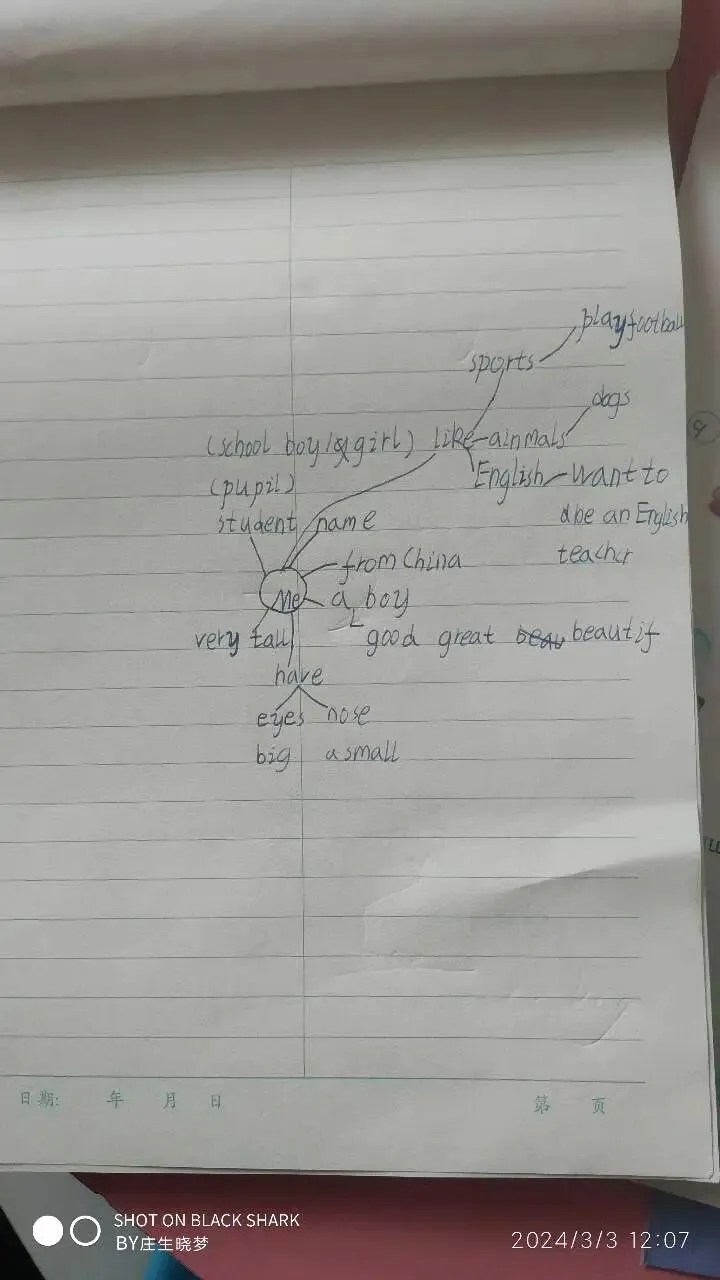 play football
sports
dogs
(school boy/&girl) like ainmals
(pupil) English want to
student name be an English
from China teacher
Me a boy
very tall good great beautif
have
eyes nose
big a small
日期: 年 月 日 第 页
SHOT ON BLACK SHARK
BY庄生晓梦 2024/3/3 12:07